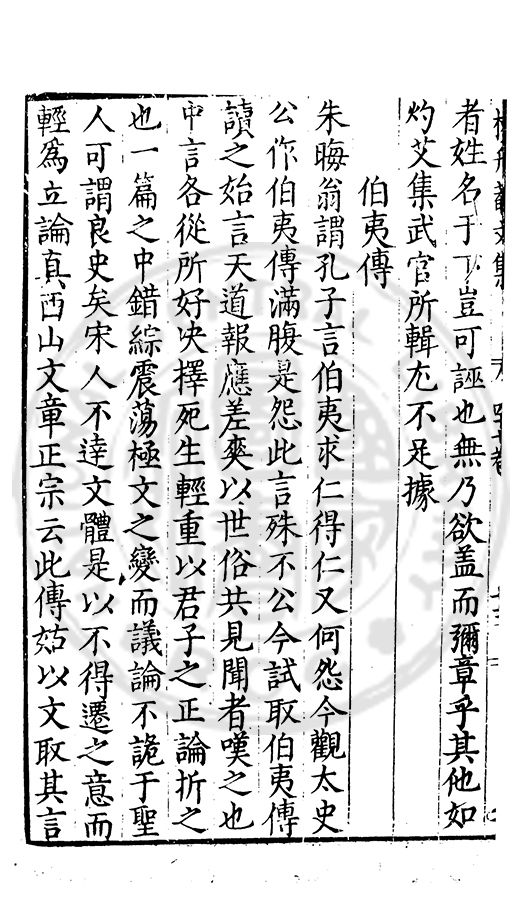 者姓名于下豈可誣也無乃欲盖而彌章乎其他如
灼艾集武官所輯尤不足據
伯夷傳
朱晦翁謂孔子言伯夷求仁得仁又何怨今觀太史
公作伯夷傳滿腹是怨此言殊不公今試取伯夷傳
讀之始言天道報應差爽以世俗共見聞者嘆之也
中言各從所好决擇死生輕重以君子之正論折之
也一篇之中錯綜震蕩極文之變而議論不詭于聖
人可謂良史矣宋人不達文體是以不得遷之意而
輕為立論真西山文章正宗云此傳姑以文取其言